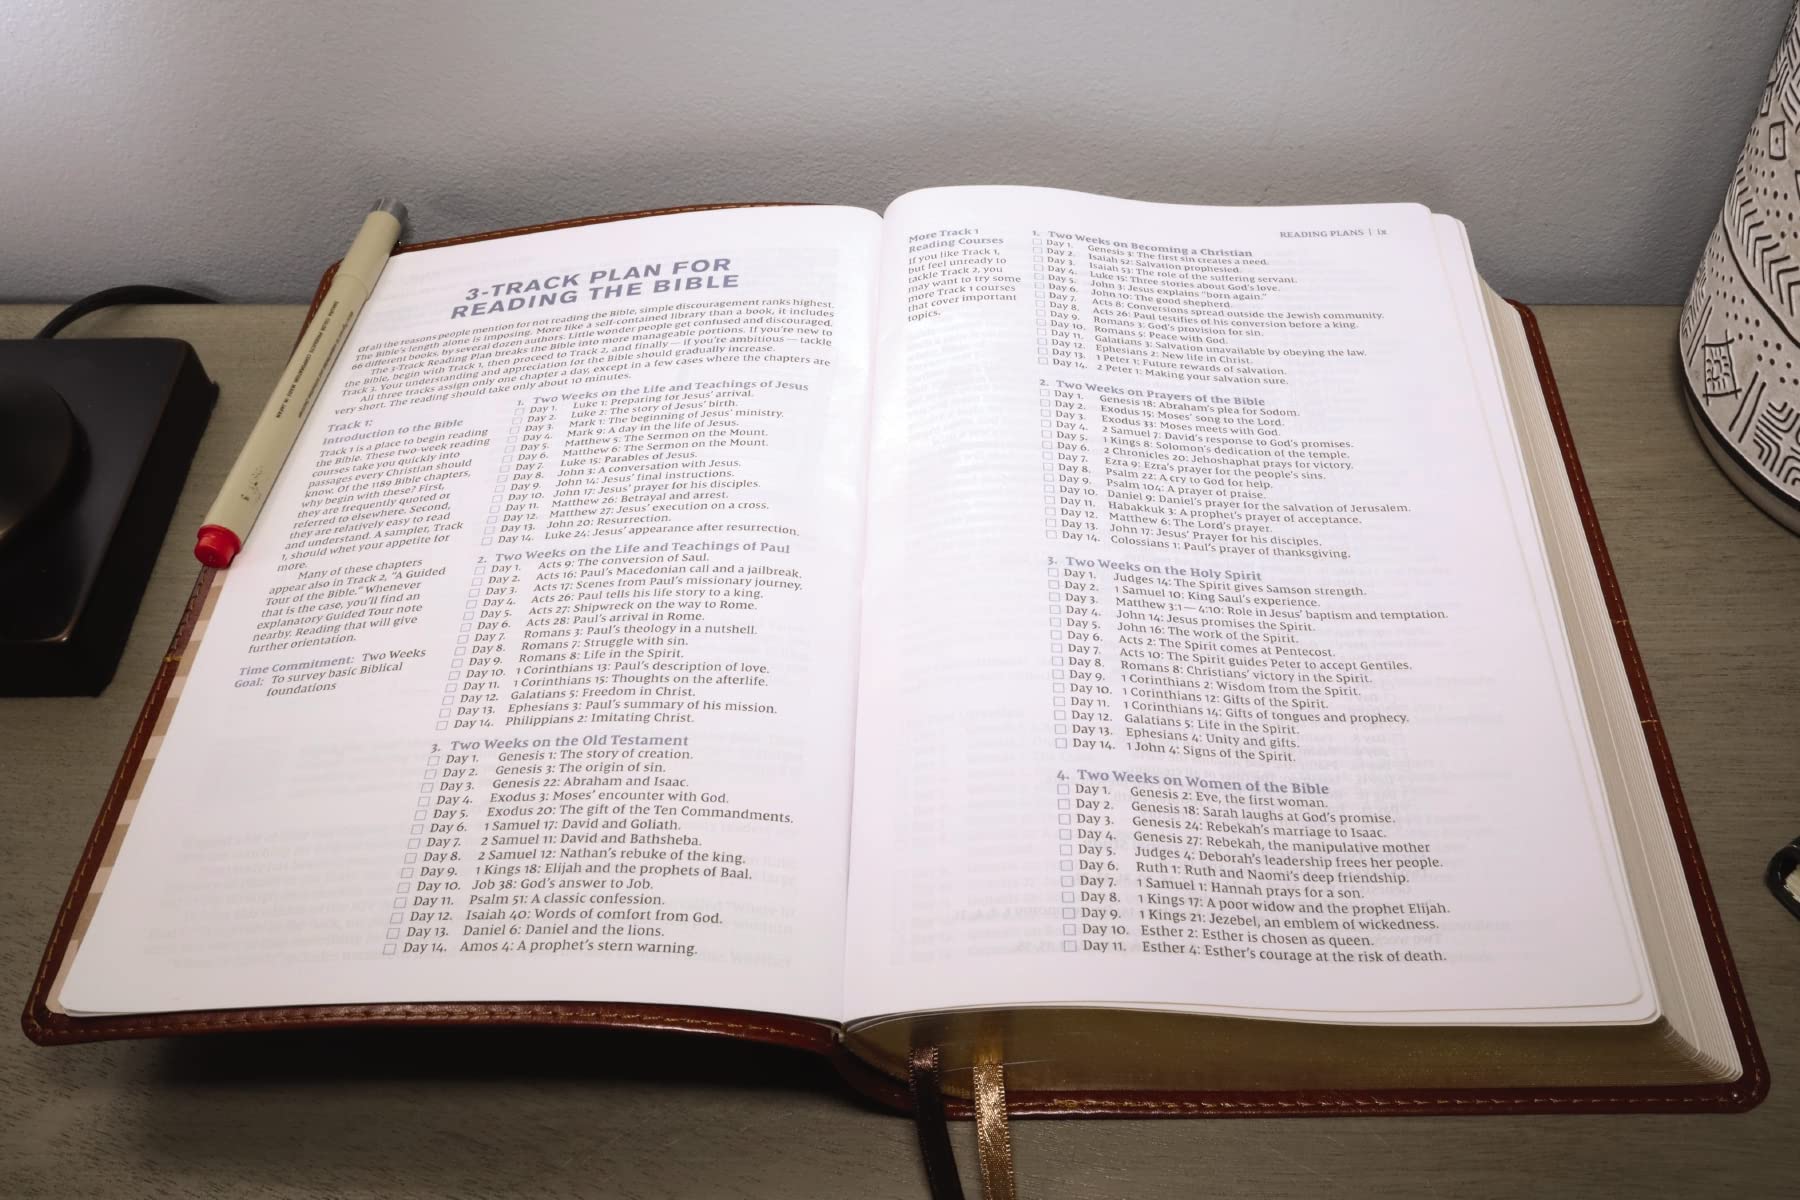 3-TRACK PLAN FOR
READING THE BIBLE
Of all the reasons people mention for not reading the Bible, simple discouragement ranks highest.
The Bible's length alone is imposing. More like a self-contained library than a book, it includes
66 different books, by several dozen authors. Little wonder people get confused and discouraged.
The 3-Track Reading Plan breaks the Bible into more manageable portions. If you're new to
the Bible, begin with Track 1, then proceed to Track 2, and finally — if you're ambitious — tackle
Track 3. Your understanding and appreciation for the Bible should gradually increase.
All three tracks assign only one chapter a day, except in a few cases where the chapters are
very short. The reading should take only about 10 minutes.
Track 1:
Introduction to the Bible
Track 1 is a place to begin reading
the Bible. These two-week reading
courses take you quickly into
passages every Christian should
know. Of the 1189 Bible chapters,
why begin with these? First,
they are frequently quoted or
referred to elsewhere. Second,
they are relatively easy to read
and understand. A sampler, Track
1, should whet your appetite for
more.
Many of these chapters
appear also in Track 2, "A Guided
Tour of the Bible." Whenever
that is the case, you'll find an
explanatory Guided Tour note
nearby. Reading that will give
further orientation.
Time Commitment: Two Weeks
Goal: To survey basic Biblical
foundations
1. Two Weeks on the Life and Teachings of Jesus
Day 1. Luke 1: Preparing for Jesus' arrival.
Day 2. Luke 2: The story of Jesus' birth.
Day 3. Mark 1: The beginning of Jesus' ministry.
Day 4. Mark 9: A day in the life of Jesus.
Day 5. Matthew 5: The Sermon on the Mount.
Day 6. Matthew 6: The Sermon on the Mount.
Day 7. Luke 15: Parables of Jesus.
Day 8. John 3: A conversation with Jesus.
Day 9. John 14: Jesus' final instructions.
Day 10. John 17: Jesus' prayer for his disciples.
Day 11. Matthew 26: Betrayal and arrest.
Day 12. Matthew 27: Jesus' execution on a cross.
Day 13. John 20: Resurrection.
Day 14. Luke 24: Jesus' appearance after resurrection.
2. Two Weeks on the Life and Teachings of Paul
Day 1. Acts 9: The conversion of Saul.
Day 2. Acts 16: Paul's Macedonian call and a jailbreak.
Day 3. Acts 17: Scenes from Paul's missionary journey.
Day 4. Acts 26: Paul tells his life story to a king.
Day 5. Acts 27: Shipwreck on the way to Rome.
Day 6. Acts 28: Paul's arrival in Rome.
Day 7. Romans 3: Paul's theology in a nutshell.
Day 8. Romans 7: Struggle with sin.
Day 9. Romans 8: Life in the Spirit.
Day 10. 1 Corinthians 13: Paul's description of love.
Day 11. 1 Corinthians 15: Thoughts on the afterlife.
Day 12. Galatians 5: Freedom in Christ.
Day 13. Ephesians 3: Paul's summary of his mission.
Day 14. Philippians 2: Imitating Christ.
3. Two Weeks on the Old Testament
Day 1. Genesis 1: The story of creation.
Day 2. Genesis 3: The origin of sin.
Day 3. Genesis 22: Abraham and Isaac.
Day 4. Exodus 3: Moses' encounter with God.
Day 5. Exodus 20: The gift of the Ten Commandments.
Day 6. 1 Samuel 17: David and Goliath.
Day 7. 2 Samuel 11: David and Bathsheba.
Day 8. 2 Samuel 12: Nathan's rebuke of the king.
Day 9. 1 Kings 18: Elijah and the prophets of Baal.
Day 10. Job 38: God's answer to Job.
Day 11. Psalm 51: A classic confession.
Day 12. Isaiah 40: Words of comfort from God.
Day 13. Daniel 6: Daniel and the lions.
Day 14. Amos 4: A prophet's stern warning.
READING PLANS | ix
More Track 1
Reading Courses
If you like Track 1,
but feel unready to
tackle Track 2, you
may want to try some
more Track 1 courses
that cover important
topics.
1. Two Weeks on Becoming a Christian
Day 1. Genesis 3: The first sin creates a need.
Day 2. Isaiah 52: Salvation prophesied.
Day 3. Isaiah 53: The role of the suffering servant.
Day 4. Luke 15: Three stories about God's love.
Day 5. John 3: Jesus explains "born again."
Day 6. John 10: The good shepherd.
Day 7. Acts 8: Conversions spread outside the Jewish community.
Day 8. Acts 26: Paul testifies of his conversion before a king.
Day 9. Romans 3: God's provision for sin.
Day 10. Romans 5: Peace with God.
Day 11. Galatians 3: Salvation unavailable by obeying the law.
Day 12. Ephesians 2: New life in Christ.
Day 13. 1 Peter 1: Future rewards of salvation.
Day 14. 2 Peter 1: Making your salvation sure.
2. Two Weeks on Prayers of the Bible
Day 1. Genesis 18: Abraham's plea for Sodom.
Day 2. Exodus 15: Moses' song to the Lord.
Day 3. Exodus 33: Moses meets with God.
Day 4. 2 Samuel 7: David's response to God's promises.
Day 5. 1 Kings 8: Solomon's dedication of the temple.
Day 6. 2 Chronicles 20: Jehoshaphat prays for victory.
Day 7. Ezra 9: Ezra's prayer for the people's sins.
Day 8. Psalm 22: A cry to God for help.
Day 9. Psalm 104: A prayer of praise.
Day 10. Daniel 9: Daniel's prayer for the salvation of Jerusalem.
Day 11. Habakkuk 3: A prophet's prayer of acceptance.
Day 12. Matthew 6: The Lord's prayer.
Day 13. John 17: Jesus' Prayer for his disciples.
Day 14. Colossians 1: Paul's prayer of thanksgiving.
3. Two Weeks on the Holy Spirit
Day 1. Judges 14: The Spirit gives Samson strength.
Day 2. 1 Samuel 10: King Saul's experience.
Day 3. Matthew 3:1 — 4:10: Role in Jesus' baptism and temptation.
Day 4. John 14: Jesus promises the Spirit.
Day 5. John 16: The work of the Spirit.
Day 6. Acts 2: The Spirit comes at Pentecost.
Day 7. Acts 10: The Spirit guides Peter to accept Gentiles.
Day 8. Romans 8: Christians' victory in the Spirit.
Day 9. 1 Corinthians 2: Wisdom from the Spirit.
Day 10. 1 Corinthians 12: Gifts of the Spirit.
Day 11. 1 Corinthians 14: Gifts of tongues and prophecy.
Day 12. Galatians 5: Life in the Spirit.
Day 13. Ephesians 4: Unity and gifts.
Day 14. 1 John 4: Signs of the Spirit.
4. Two Weeks on Women of the Bible
Day 1. Genesis 2: Eve, the first woman.
Day 2. Genesis 18: Sarah laughs at God's promise.
Day 3. Genesis 24: Rebekah's marriage to Isaac.
Day 4. Genesis 27: Rebekah, the manipulative mother
Day 5. Judges 4: Deborah's leadership frees her people.
Day 6. Ruth 1: Ruth and Naomi's deep friendship.
Day 7. 1 Samuel 1: Hannah prays for a son.
Day 8. 1 Kings 17: A poor widow and the prophet Elijah.
Day 9. 1 Kings 21: Jezebel, an emblem of wickedness.
Day 10. Esther 2: Esther is chosen as queen.
Day 11. Esther 4: Esther's courage at the risk of death.